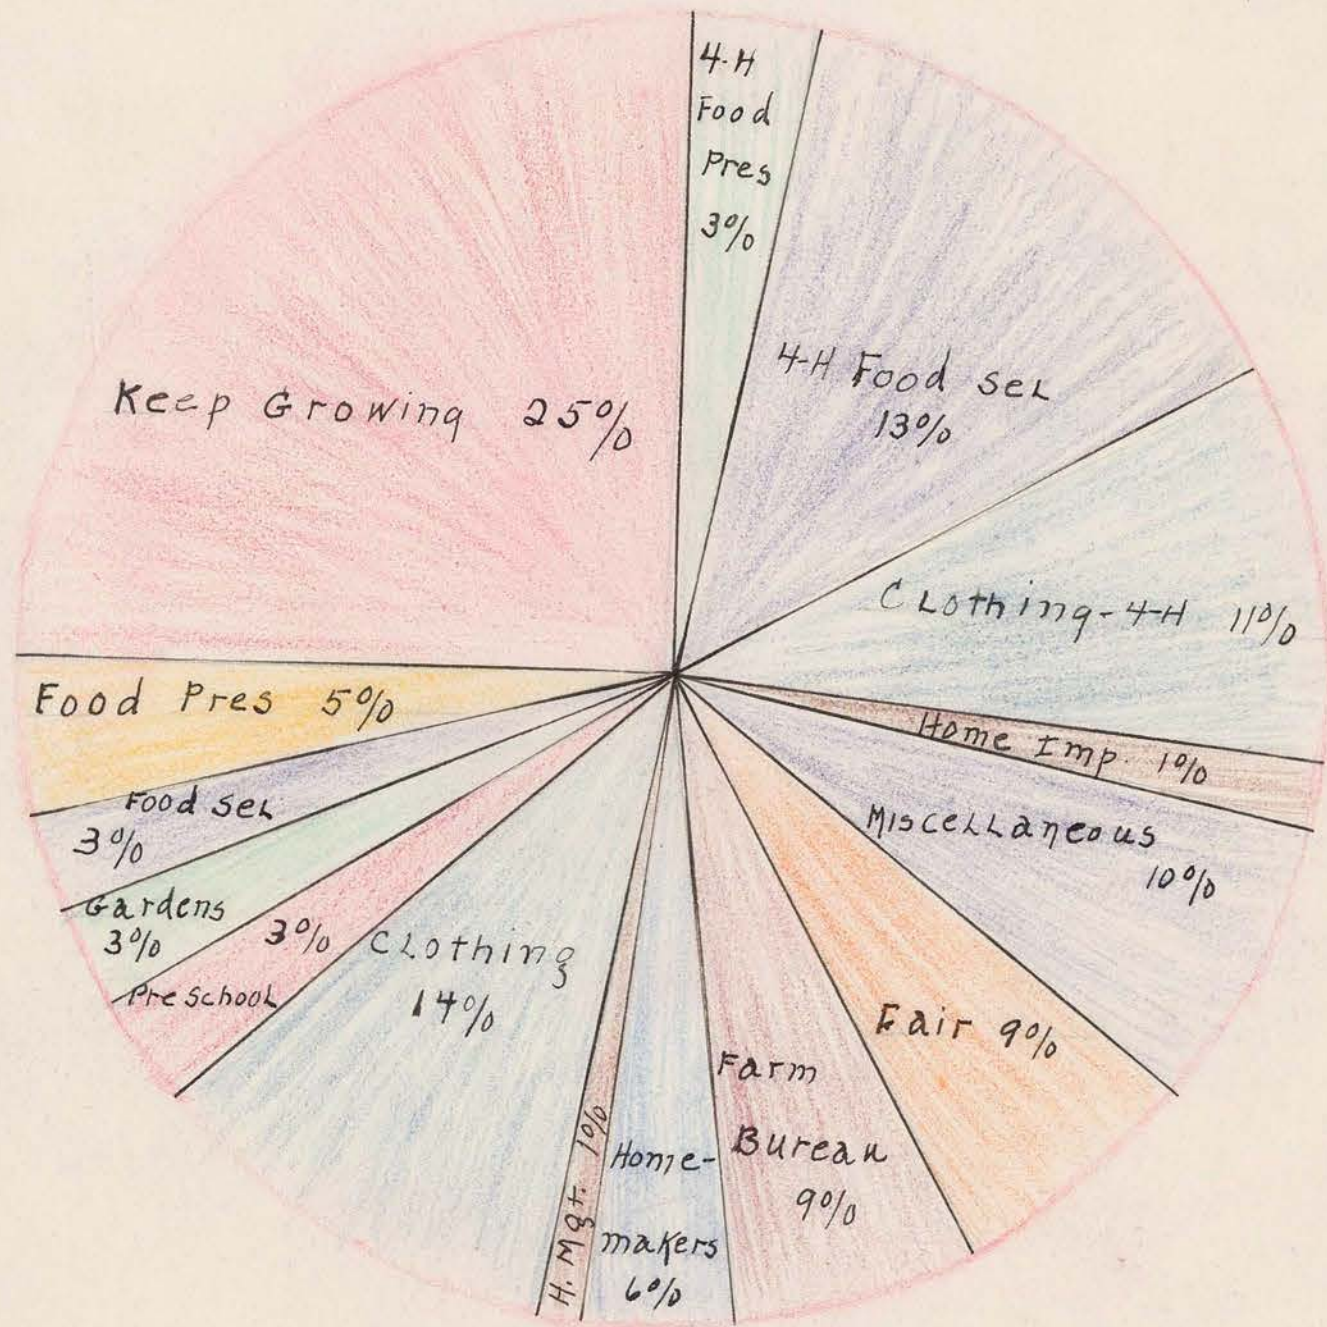 4-H
Food
Pres
3%
4-H Food Sel
13%
Clothing-4-H 11%
Home Imp. 1%
Miscellaneous
10%
Fair 9%
Farm
Bureau
9%
Home-
makers
6%
H. Mgt. 1%
Clothing
14%
3%
Preschool
Gardens
3%
Food Sel
3%
Food Pres 5%
Keep Growing 25%